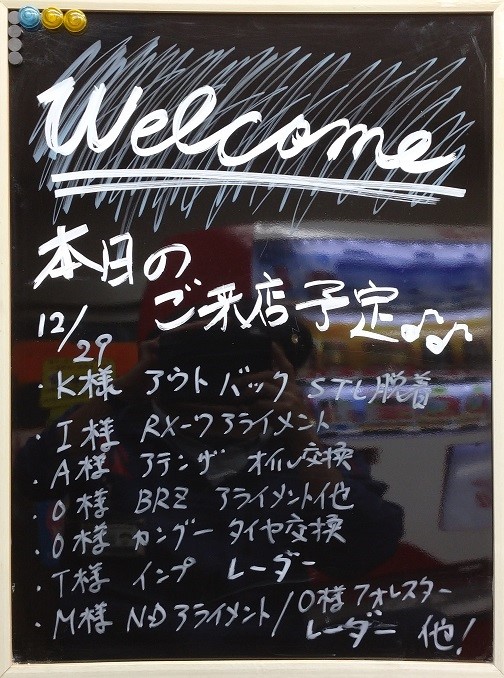 Welcome
本日の
ご来店予定♫♪
12/29
・K様 アウトバック STL脱着
・I様 RX-7 アライメント
・A様 アテンザ オイル交換
・O様 BRZ アライメント他
・O様 カングー タイヤ交換
・T様 インプ レーダー
・M様 ND アライメント/O様 フォレスター
レーダー 他!